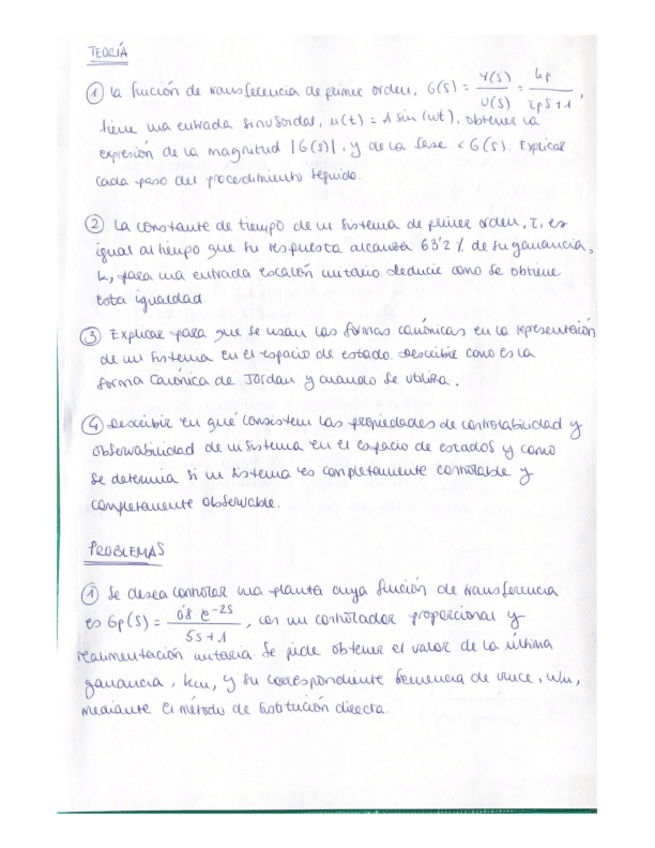 TEORÍA
① La función de transferencia de primer orden, G(s) = Y(s)/U(s) = kp/(τps+1),
tiene una entrada sinusoidal, u(t) = A sin(wt), obtener la
expresión de la magnitud |G(s)|, y de la fase <G(s). Explicar
cada paso del procedimiento seguido.
② La constante de tiempo de un sistema de primer orden, τ, es
igual al tiempo que su respuesta alcanza 63'2 % de su ganancia,
k, para una entrada escalón unitario deducir como se obtiene
esta igualdad.
③ Explicar para que se usan las formas canónicas en la representación
de un sistema en el espacio de estado. Describir como es la
forma canónica de Jordan y cuando se utiliza.
④ Describir en qué consisten las propiedades de controlabilidad y
observabilidad de un sistema en el espacio de estados y como
se determina si un sistema es completamente controlable y
completamente observable.
PROBLEMAS
① Se desea controlar una planta cuya función de transferencia
es Gp(s) = 0'8 e^-2s/(5s+1), con un controlador proporcional y
realimentación unitaria. Se pide obtener el valor de la última
ganancia, kcu, y su correspondiente frecuencia de cruce, wu,
mediante el método de sustitución directa.